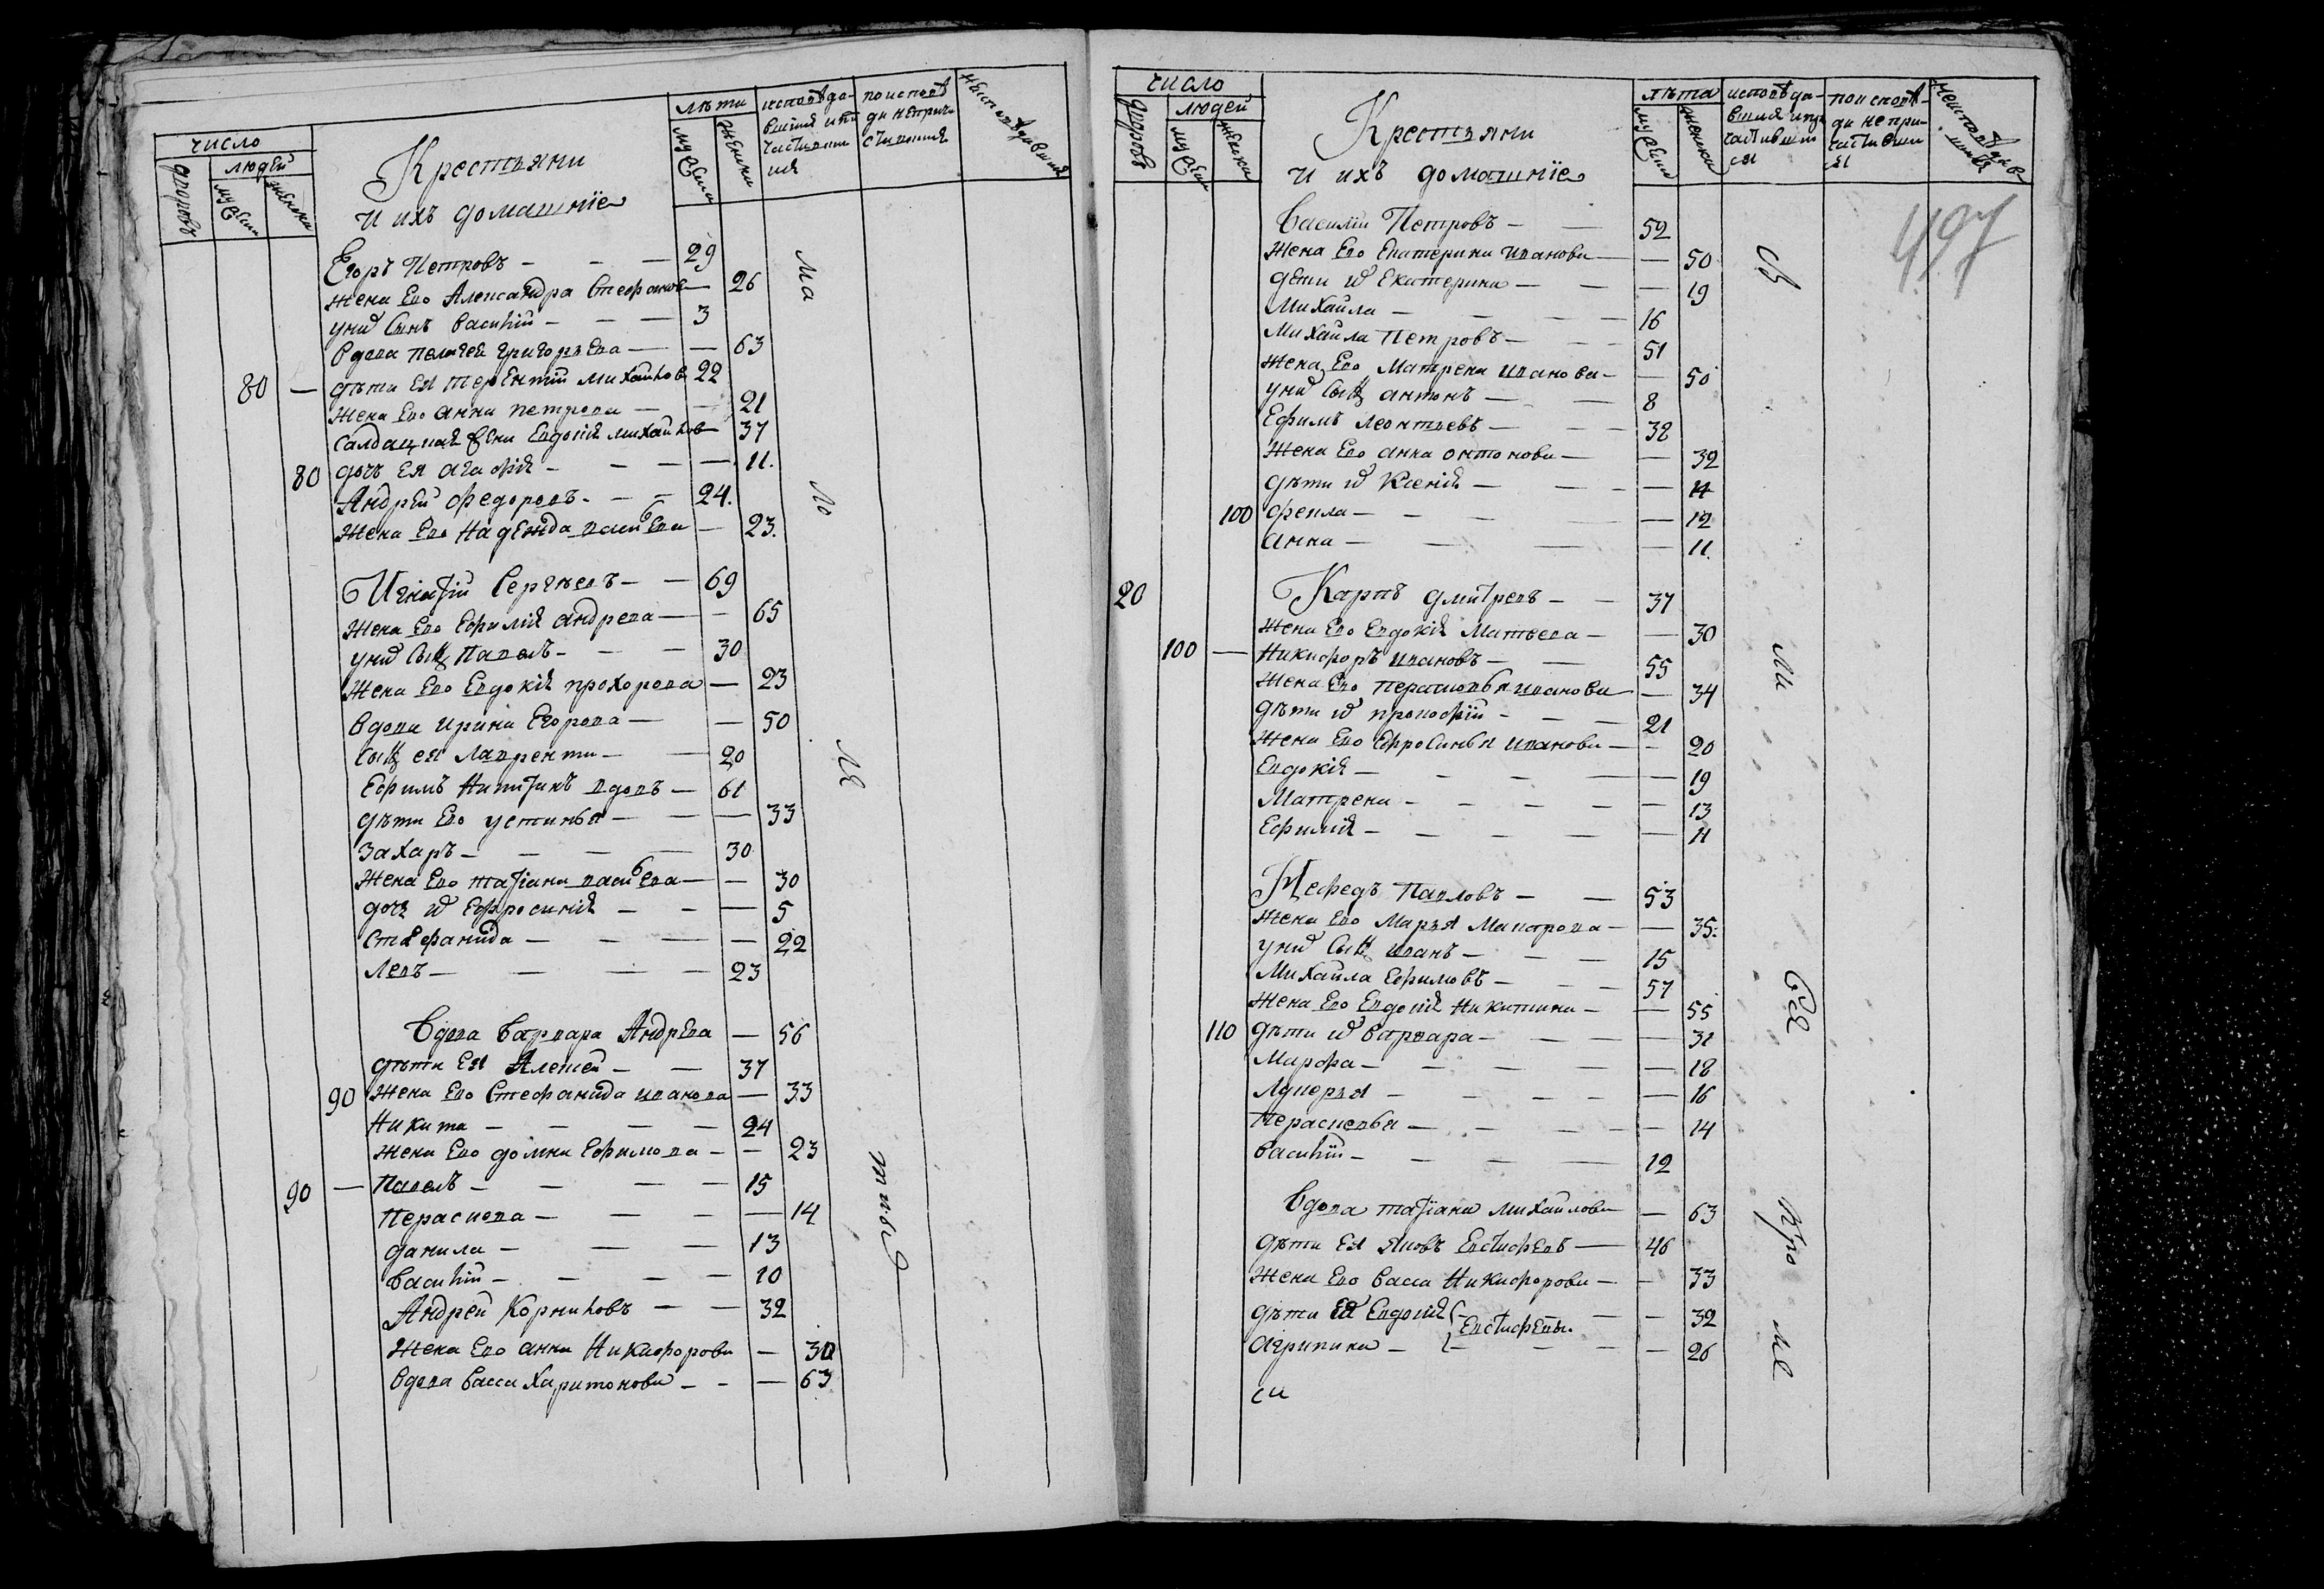 число
дворовъ
людей
мужеска
женска
Крестьяни
и ихъ домашніе
лѣта
мужеска
женска
исповѣда-
вшіися и при
частивши
ися
по исповѣ
ди неприча
стившися
неисповѣдавшия
Егоръ Петровъ — 29
жена Его Александра Стефанова — 26
у них Сынъ василiй — 3
вдова Пелагея григорьева — 63
80 — дѣти Ея терентiй михайлов 22
жена Его анна петрова — 21
салдацкая жена Евдокiя михайлов — 37
80 дочь Ея агафiя — 11.
Андрей федоровъ — 24.
жена Его надежда васильева — 23.
Игнатiй Сергѣевъ — 69
жена Его Ефимiя андреева — 65
у них Сынъ Павелъ — 30
жена Его Евдокiя прохорова — 23
вдова ирина Егорова — 50
сынъ ея Лаврентi — 20
Ефимъ Никитинъ вдовъ — 61
дѣти Его устинья — 33
захаръ — 30
жена Его татiана васильева — 30
дочь их Ефросинiя — 5
стефанида — 22
Левъ — 23
вдова варвара Андреева — 56
дѣти Ея Алексей — 37
90 жена Его Стефанида иванова — 33
никита — 24
жена Его домна Ефимова — 23
90 — Павелъ — 15
Пераскева — 14
данила — 13
василiй — 10
Андрей Корниловъ — 32
жена Его анна Никифорова — 30
вдова васса Харитонова — 63
ма
ло
лѣ
тны
число
дворовъ
людей
мужеска
женска
Крестьяни
и ихъ домашнiе
лѣта
мужеска
женска
исповѣда-
вшися и при
частивши
ся
по исповѣ-
ди непри-
частивши
ся
неисповѣдав
шияся
497
василiй Петровъ — 52
жена Его Екатерина иванова — 50
дѣти их Екатерина — 19
михайла — 16
михайла петровъ — 51
жена Его матрена иванова — 50
у них Сынъ антонъ — 8
Ефимъ леонтьевъ — 32
жена Его анна антонова — 32
дѣти их Ксенiя — 14
100 фекла — 12
анна — 11.
20 Карпъ дмитревъ — 37
жена Его Евдокiя матвеева — 30
100 — Никифоръ ивановъ — 55
жена Его перасковья иванова — 34
дѣти их прокофiй — 21
жена Его Ефросинья иванова — 20
Евдокiя — 19
матрена — 13
Ефимiя — 11
Нефедъ Павловъ — 53
жена Его Марья Макарова — 35.
у них Сынъ иванъ — 15
михайла Ефимовъ — 57
жена Его Евдокiя Никитина — 55
110 дѣти их варвара — 31
марфа — 18
Лукерья — 16
Перасковья — 14
василiй — 12
вдова татiана михайлова — 63
дѣти Ея яковъ Евстифеевъ — 46
жена Его васса Никифорова — 33
дѣти Ея Евдокiя — 32
Евстифеевы.
агрипина — 26
си
св
ми
про
ме